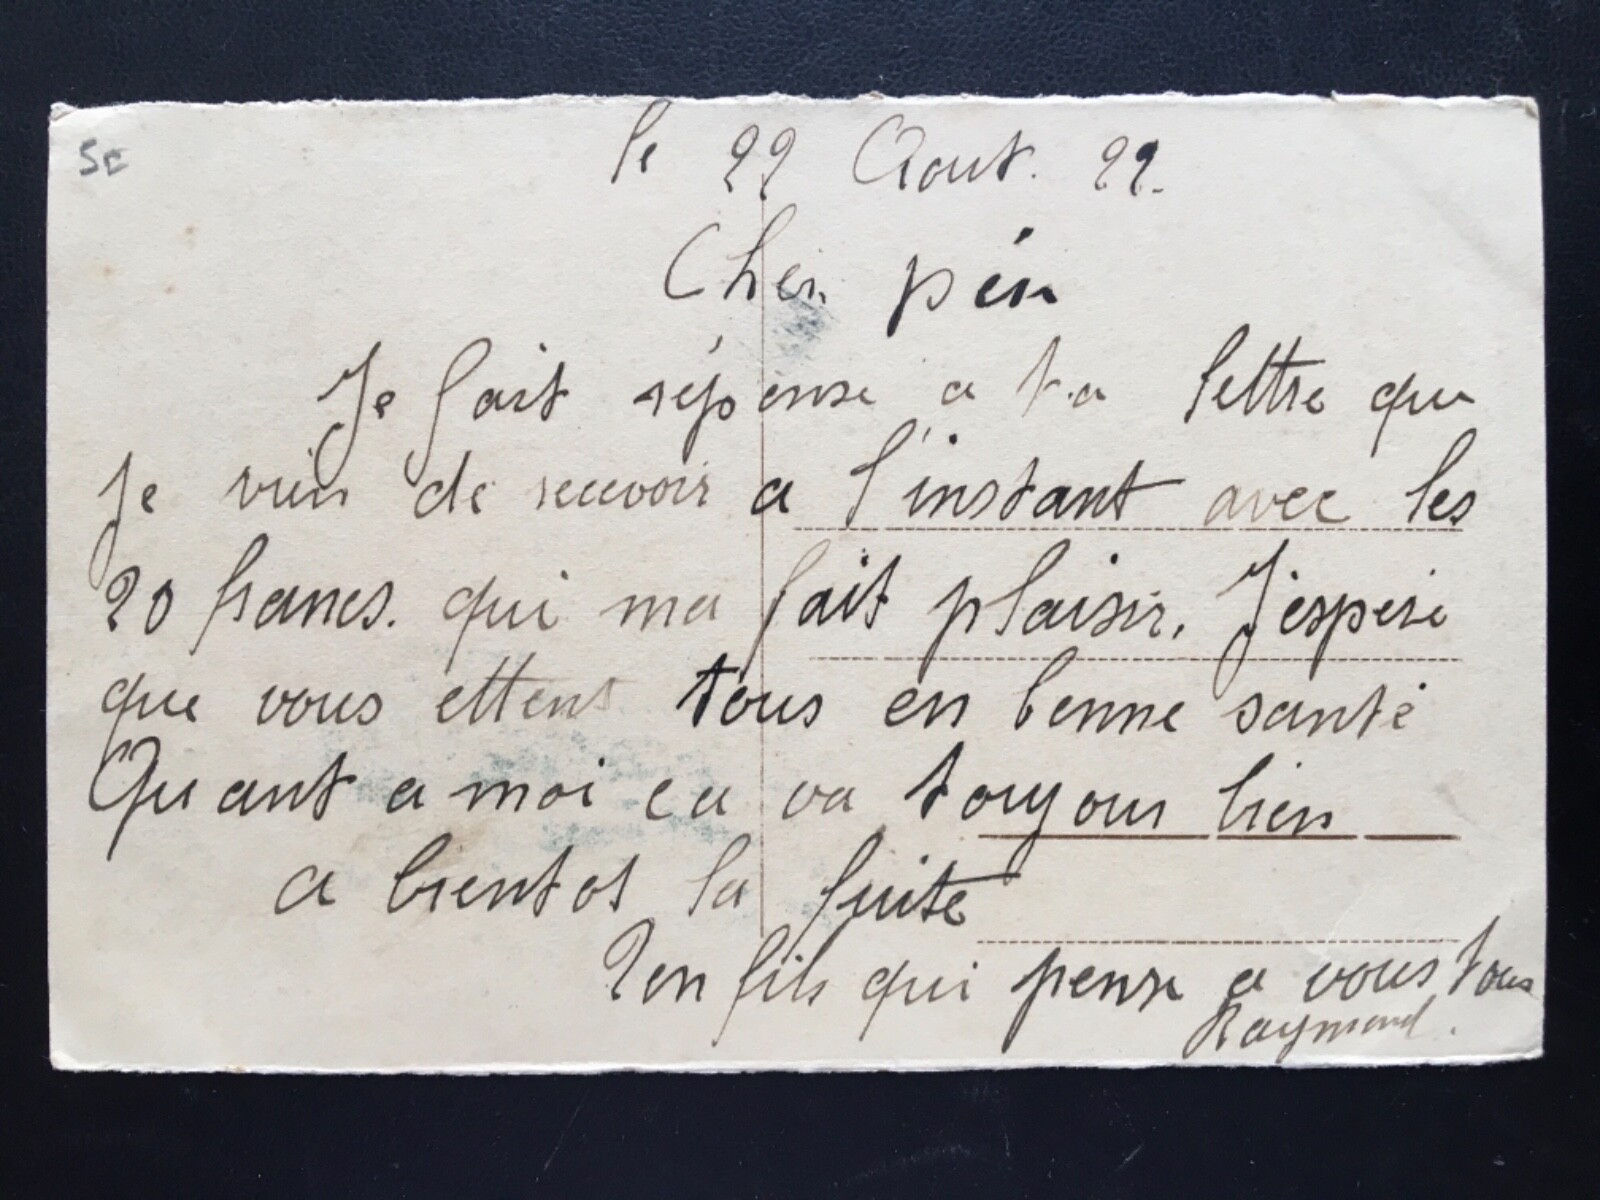 5c
le 22 Aout. 22.
Cher pére
Je fait réponse a ta lettre que
je vien de recevoir a l'instant avec les
20 francs. qui ma fait plaisir. J'espere
que vous ettent tous en bonne santé
Quant a moi ca va toujour bien
a bientot la suite
Ton fils qui pense a vous tous
Raymond.